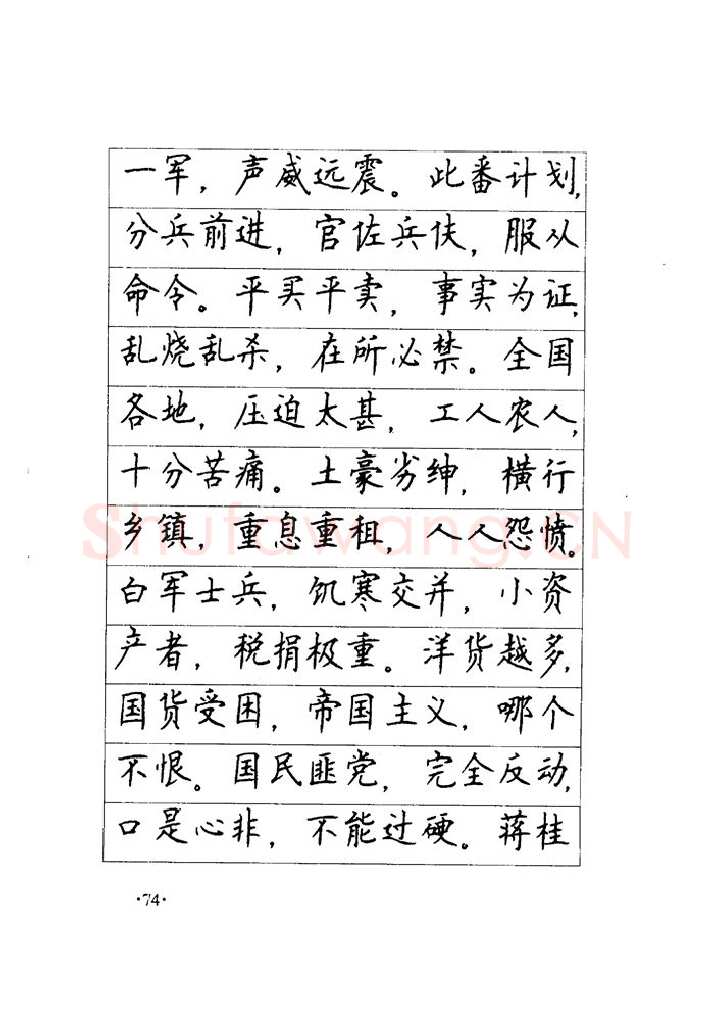 一军，声威远震。此番计划，
分兵前进，官佐兵伕，服从
命令。平买平卖，事实为证，
乱烧乱杀，在所必禁。全国
各地，压迫太甚，工人农人，
十分苦痛。土豪劣绅，横行
乡镇，重息重租，人人怨愤。
白军士兵，饥寒交并，小资
产者，税捐极重。洋货越多，
国货受困，帝国主义，哪个
不恨。国民匪党，完全反动，
口是心非，不能过硬。蒋桂
·74·
Shufawang.CN